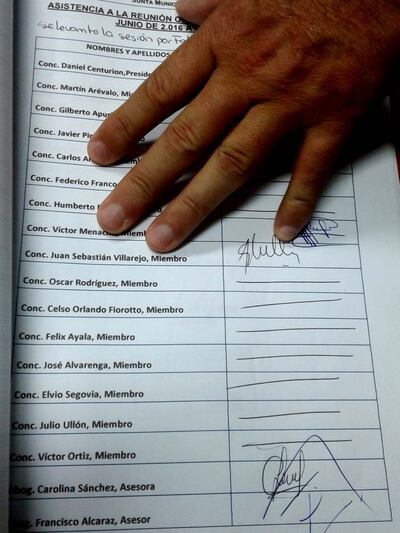 JUNTA MUNIC
ASISTENCIA A LA REUNIÓN O
JUNIO DE 2.016 A
se levanto la sesión por Fal
NOMBRES Y APELLIDOS
Conc. Daniel Centurion,Preside
Conc. Martín Arévalo, Mi
Conc. Gilberto Apu
Conc. Javier Pi
Conc. Carlos A embro
Conc. Federico Franco
Conc. Humberto
Conc. Víctor Menach Miemb
Conc. Juan Sebastián Villarejo, Miembro
Conc. Oscar Rodríguez, Miembro
Conc. Celso Orlando Fiorotto, Miembro
Conc. Felix Ayala, Miembro
Conc. José Alvarenga, Miembro
Conc. Elvio Segovia, Miembro
Conc. Julio Ullón, Miembro
Conc. Víctor Ortiz, Miembro
bog. Carolina Sánchez, Asesora
og. Francisco Alcaraz, Asesor